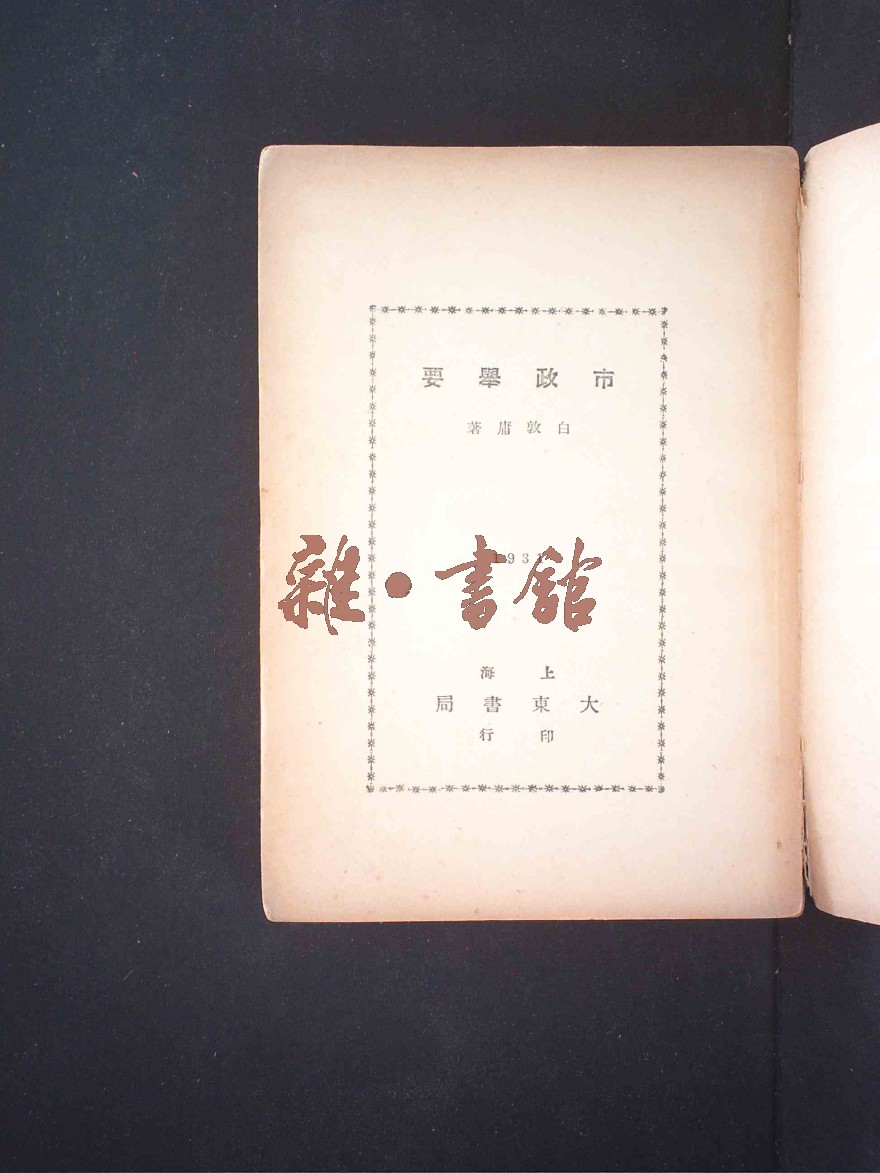 市政舉要
白敦庸著
1931
雜·書館
上海
大東書局
印行